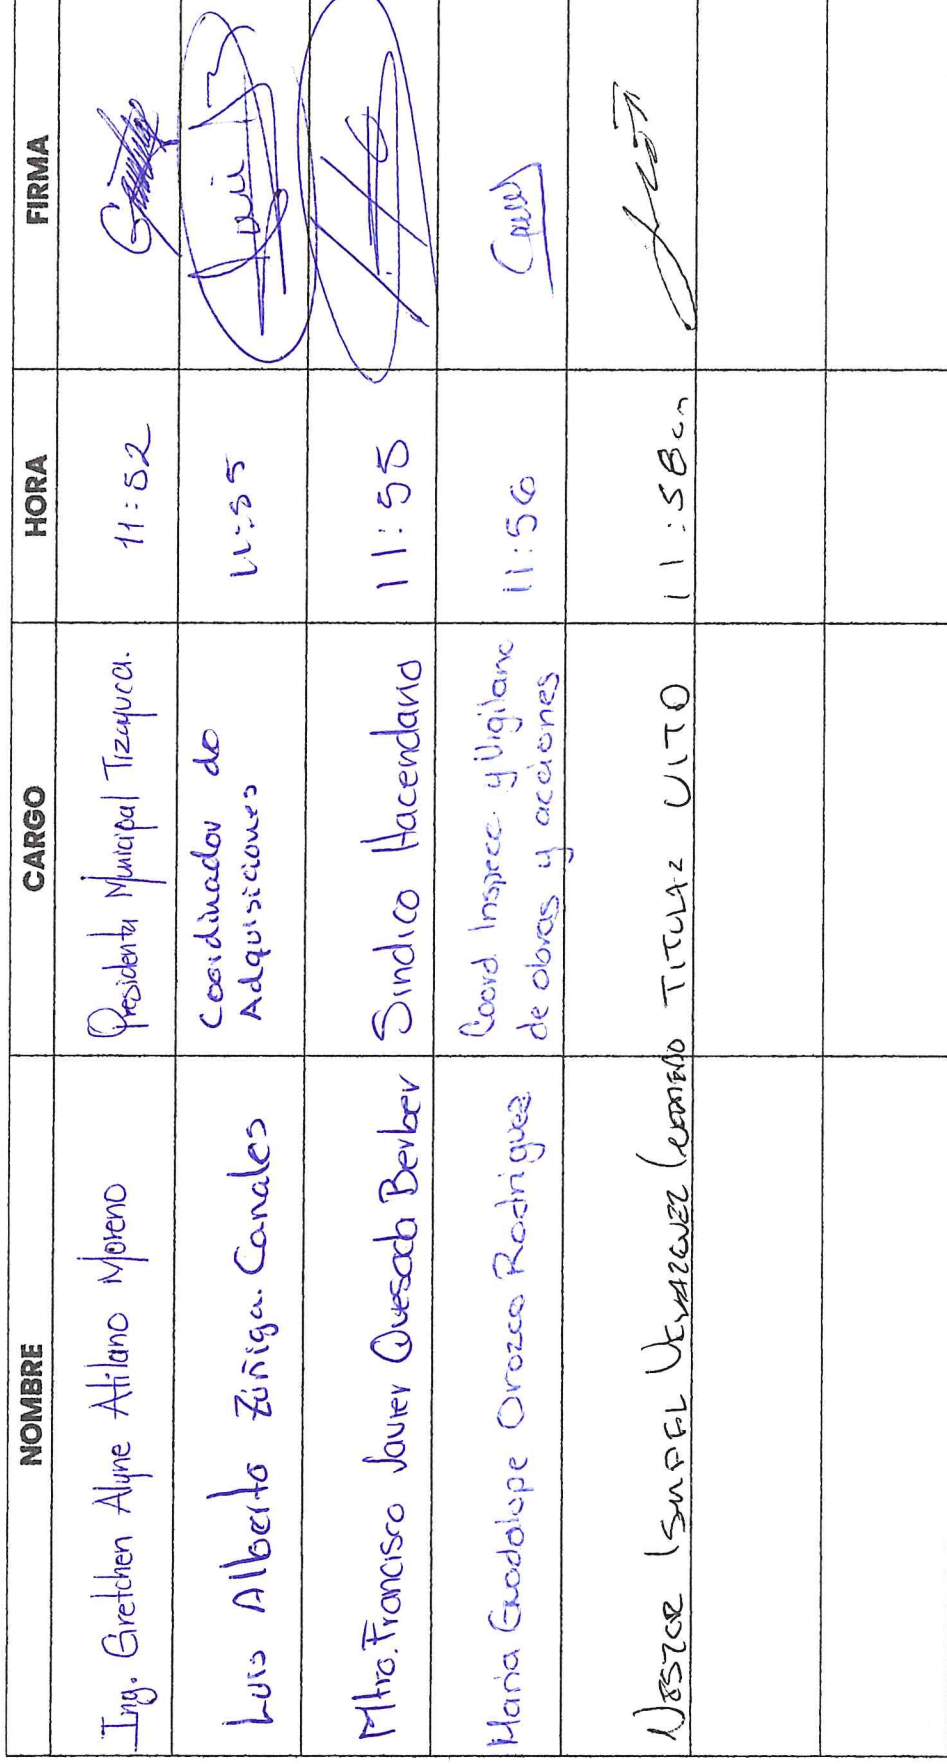 NOMBRE CARGO HORA FIRMA
Ing. Gretchen Alyne Atilano Moreno Presidenta Municipal Tizayuca. 11:52
Luis Alberto Zúñiga Canales Coordinador de
Adquisiciones 11:55
Mtro. Francisco Javier Quesada Berber Sindico Hacendario 11:55
Maria Guadalupe Orozco Rodriguez Coord. Inspecc. y Vigilanc
de obras y acciones 11:56
NESTOR ISMAEL TITULAR UITO 11:58